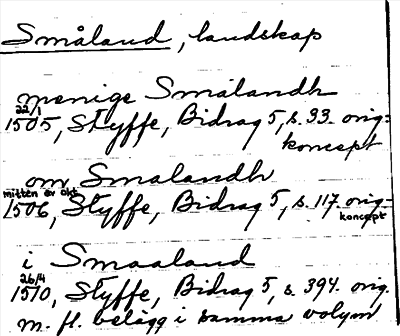 Småland, landskap
menige Smålandh
22/1
1505, Styffe, Bidrag 5, s. 33. orig=
koncept
om Smalandh
mitten av okt
1506, Styffe, Bidrag 5, s. 117. orig=
koncept
i Smaaland
26/4
1510, Styffe, Bidrag 5, s. 394. orig.
m. fl. belägg i samma volym